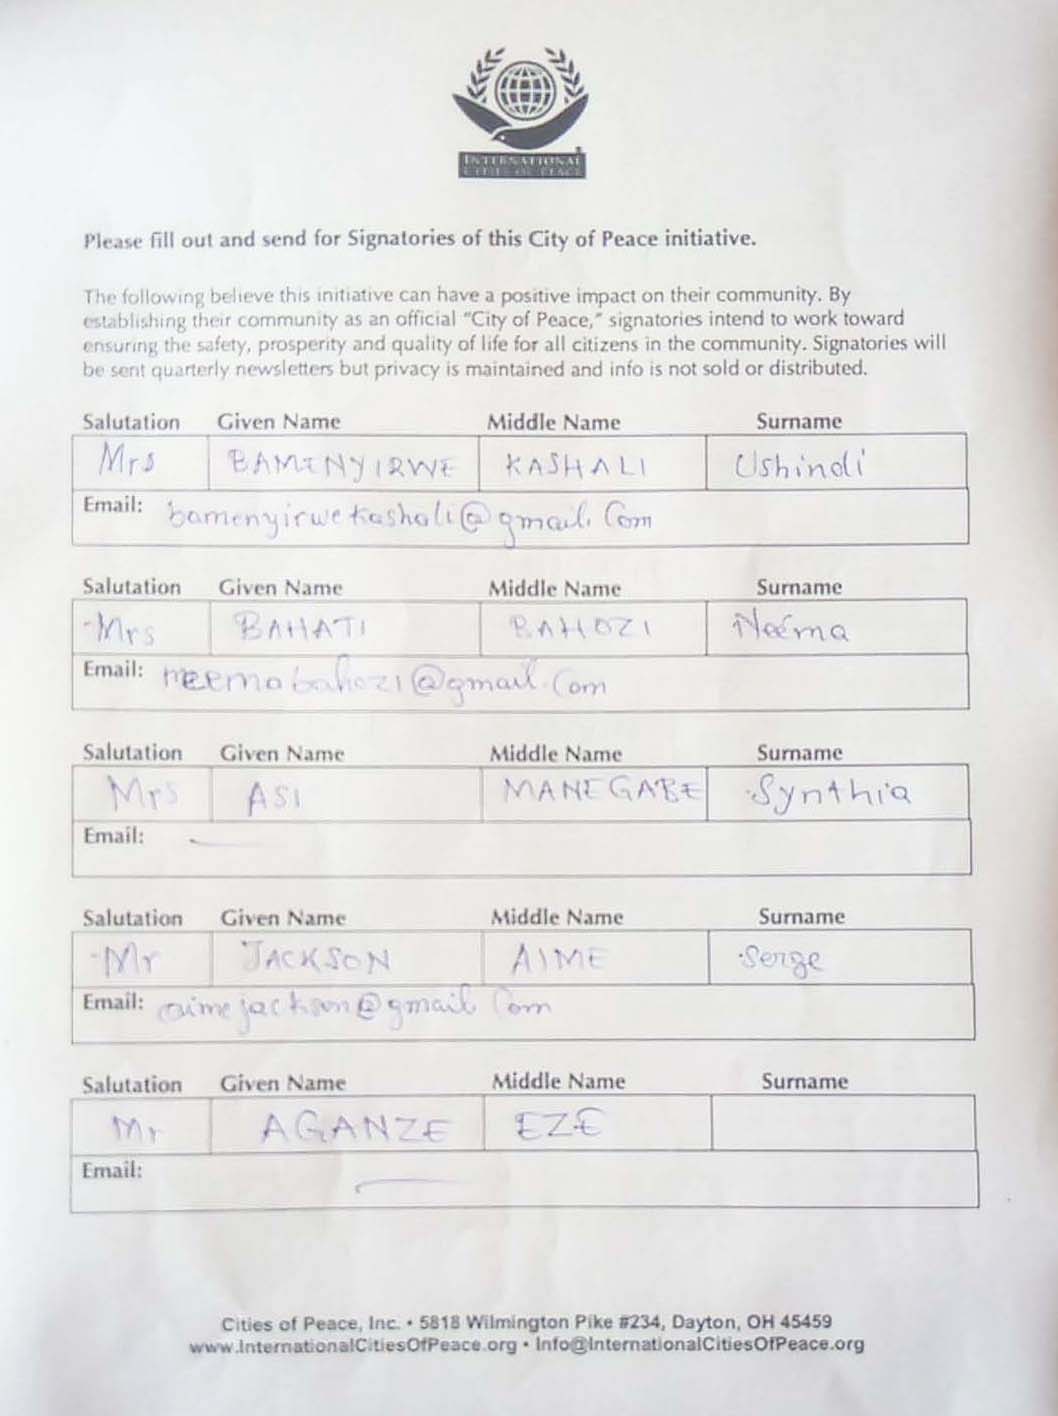 INTERNATIONAL
CITIES OF PEACE
Please fill out and send for Signatories of this City of Peace initiative.
The following believe this initiative can have a positive impact on their community. By
establishing their community as an official "City of Peace," signatories intend to work toward
ensuring the safety, prosperity and quality of life for all citizens in the community. Signatories will
be sent quarterly newsletters but privacy is maintained and info is not sold or distributed.
Salutation Given Name Middle Name Surname
Mrs BAMENYIRWE KASHALI Ushindi
Email: bamenyirwekashali@gmail.Com
Salutation Given Name Middle Name Surname
-Mrs BAHATI BAHOZI Neema
Email: neemabahozi@gmail.Com
Salutation Given Name Middle Name Surname
Mrs ASI MANEGABE Synthia
Email:
Salutation Given Name Middle Name Surname
-Mr JACKSON AIME Serge
Email: aimejackson@gmail Com
Salutation Given Name Middle Name Surname
Mr AGANZE EZE
Email:
Cities of Peace, Inc. • 5818 Wilmington Pike #234, Dayton, OH 45459
www.InternationalCitiesOfPeace.org • Info@InternationalCitiesOfPeace.org